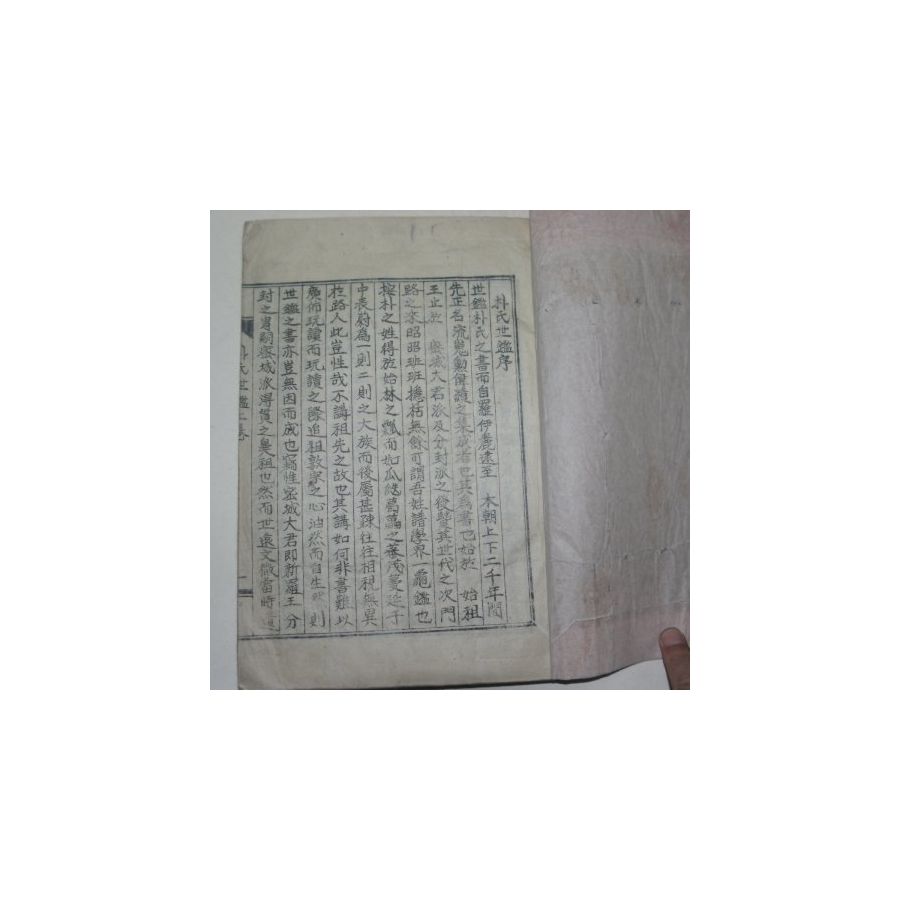 朴氏世鑑序
世鑑朴氏之書而自羅伊麗遠至 本朝上下二千年間
先正名流嵬勳偉蹟之集成者也其爲書也始於 始祖
王止於 密城大君派及分封派之後暨其世代之次門
路之來昭昭班班總括無餘可謂吾姓譜學界一龜鑑也
按朴之姓得於始林之瓢而如瓜瓞葛藟之蕃茂蔓延于
中表蔚爲一則二則之大族而後屬甚疎往往相視無異
於路人此豈性哉不講祖先之故也其講如何非書難以
廣佈玩讀而玩讀之際追祖敦宗之心油然而自生矣則
世鑑之書亦豈無因而成也竊惟密城大君卽新羅王 分
封之胄嗣密城派得貫之奥祖也然而世遠文微當時
氏世鑑上卷